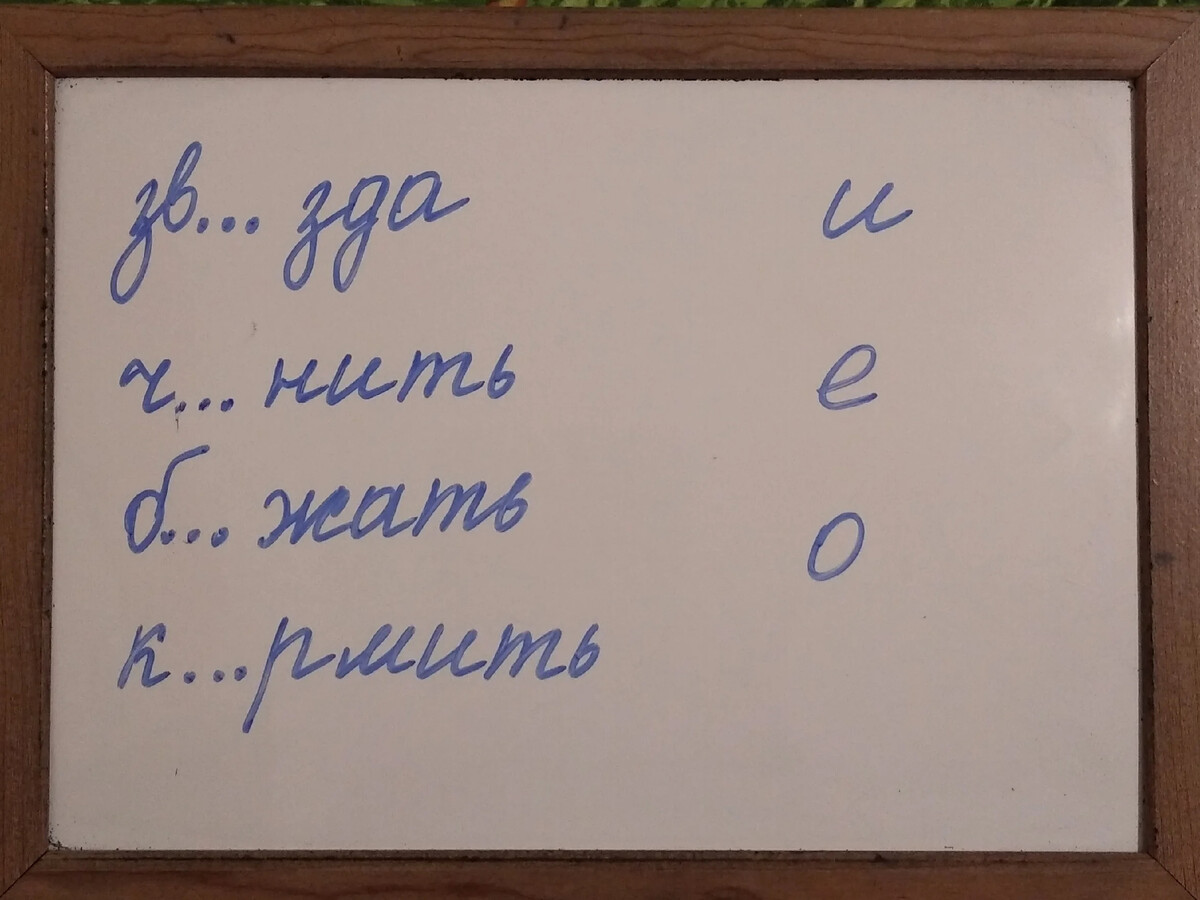 зв... зда и
ч... нить е
б... жать о
к...рмить